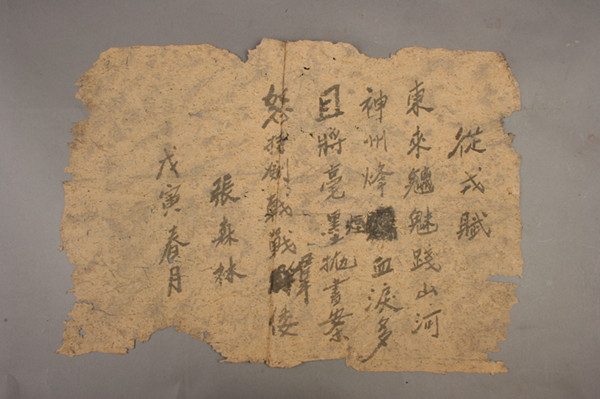 從戎賦
東來魑魅踐山河
神州烽煙血淚多
且將毫墨拋書案
怒持劍戟戰倭
張森林
戊寅春月